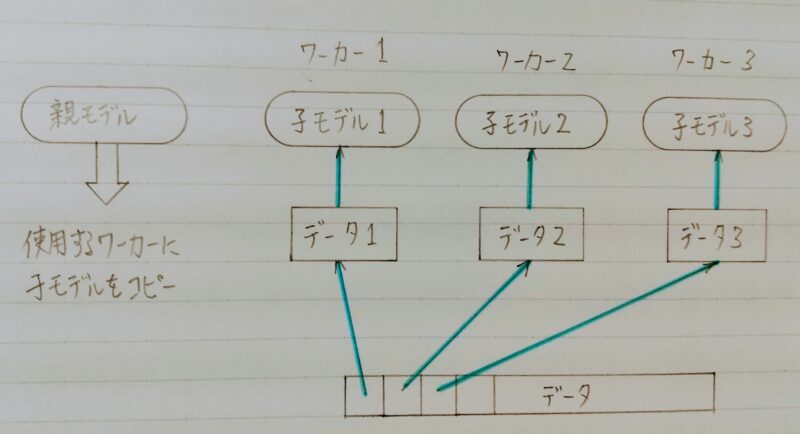 ワーカー1
ワーカー2
ワーカー3
親モデル
子モデル1
子モデル2
子モデル3
データ1
データ2
データ3
使用するワーカーに
子モデルをコピー
データ